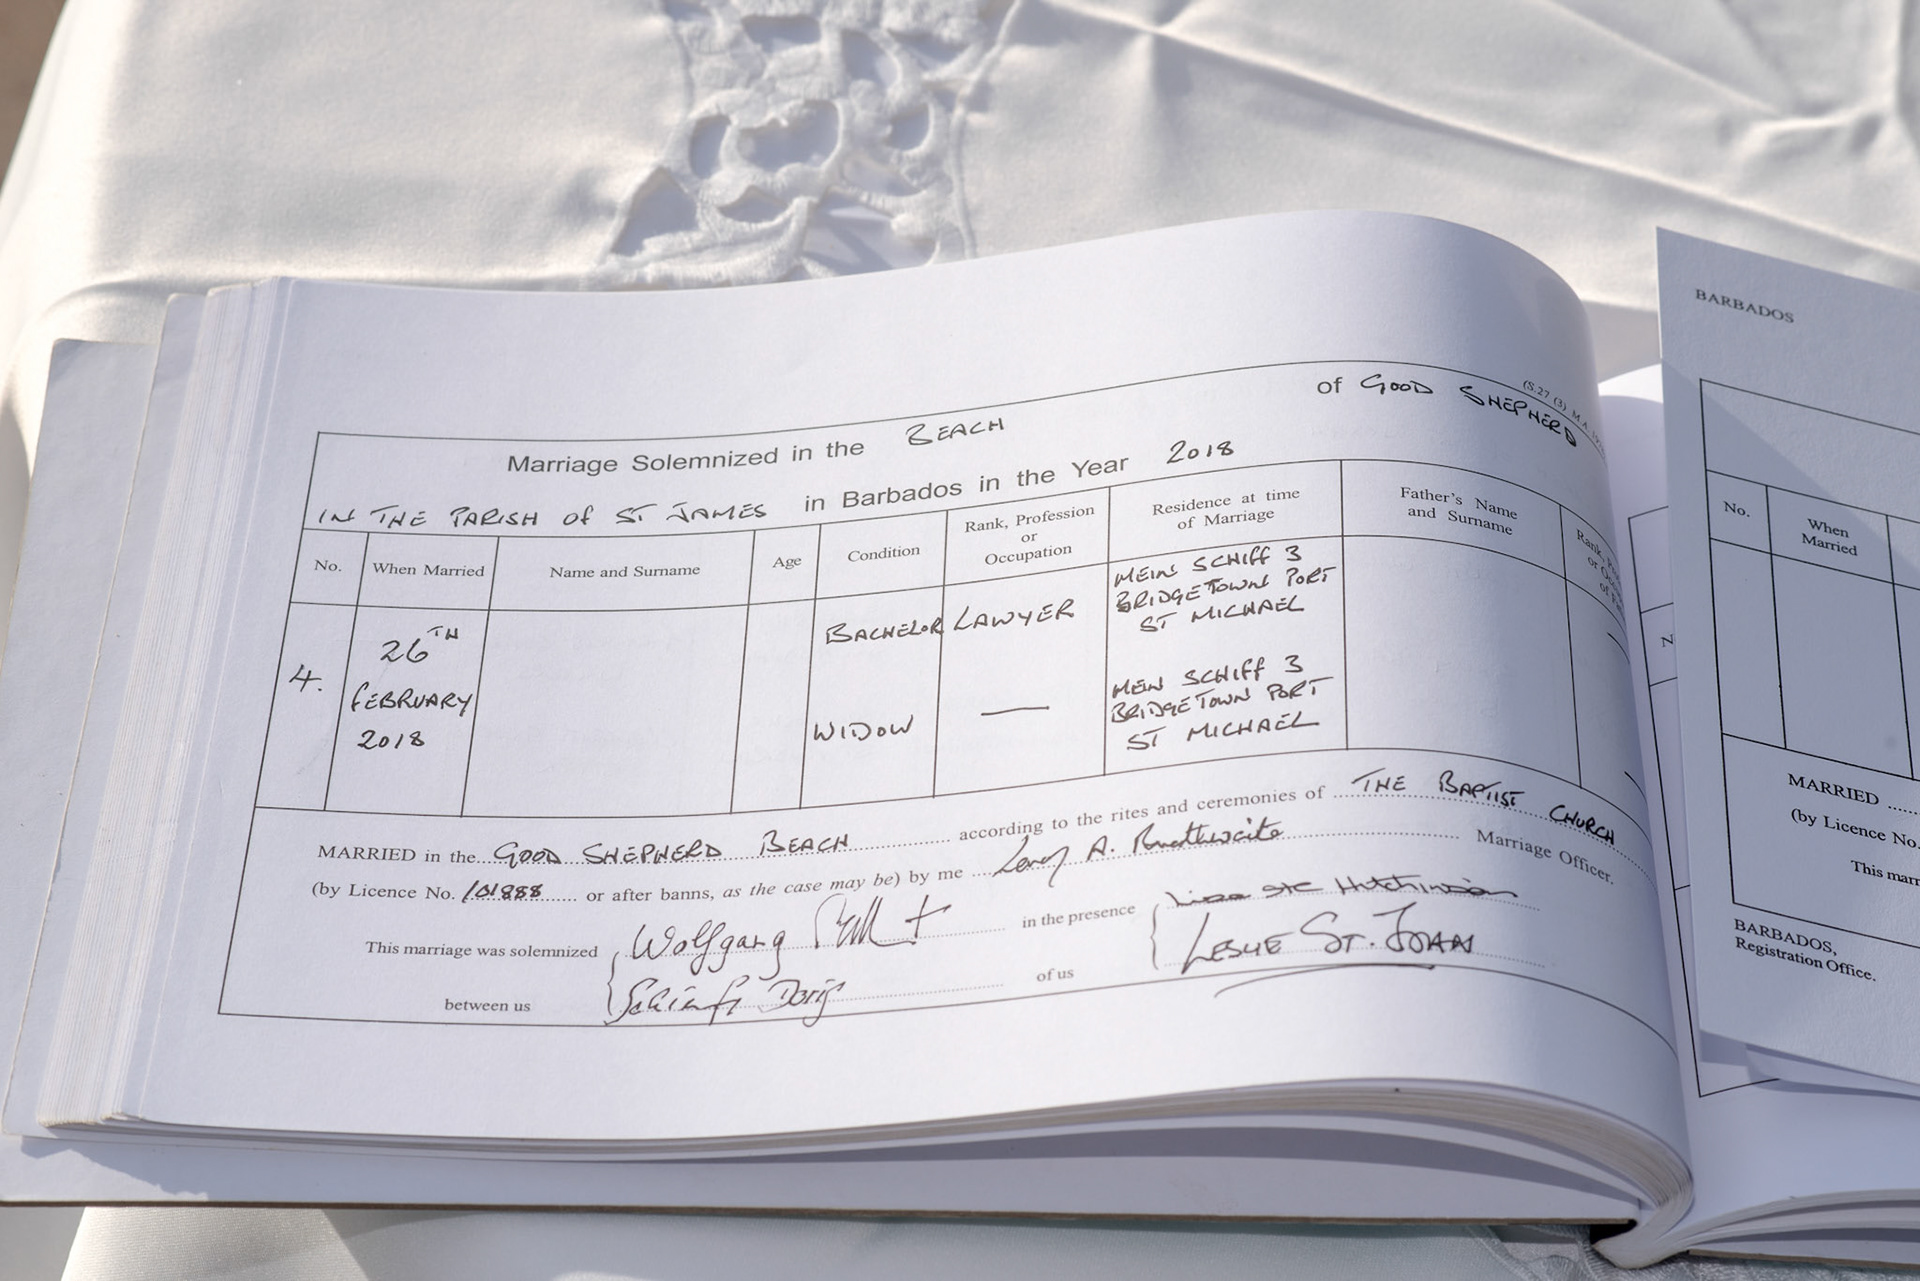 (S.27 (3) M.A.
Marriage Solemnized in the BEACH of GOOD SHEPHERD
IN THE PARISH OF ST JAMES in Barbados in the Year 2018
No. When Married Name and Surname Age Condition Rank, Profession or Occupation Residence at time of Marriage Father's Name and Surname
4. 26TH FEBRUARY 2018
BACHELOR LAWYER MEIN SCHIFF 3 BRIDGETOWN PORT ST MICHAEL
WIDOW — MEIN SCHIFF 3 BRIDGETOWN PORT ST MICHAEL
MARRIED in the GOOD SHEPHERD BEACH according to the rites and ceremonies of THE BAPTIST CHURCH
(by Licence No. 101888 or after banns, as the case may be) by me A. Brathwaite Marriage Officer.
This marriage was solemnized Wolfgang in the presence Hutchinson
between us Doris of us LESLIE ST. JOHN
BARBADOS
No. When Married
MARRIED
(by Licence No.
This marr
BARBADOS,
Registration Office.